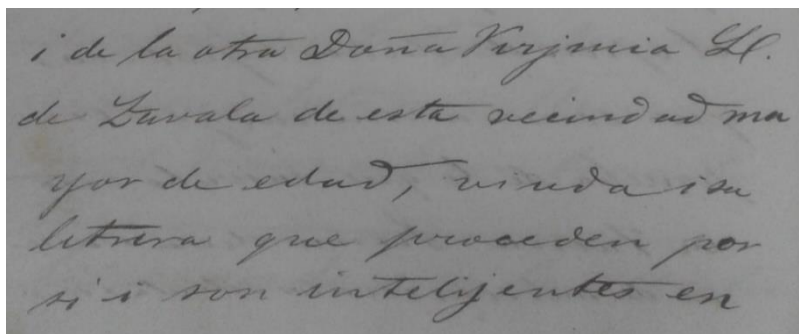 i de la otra Doña Virjinia Ll.
de Zavala de esta vecindad ma
yor de edad, viuda i sa
litrera que proceden por
si i son intelijentes en